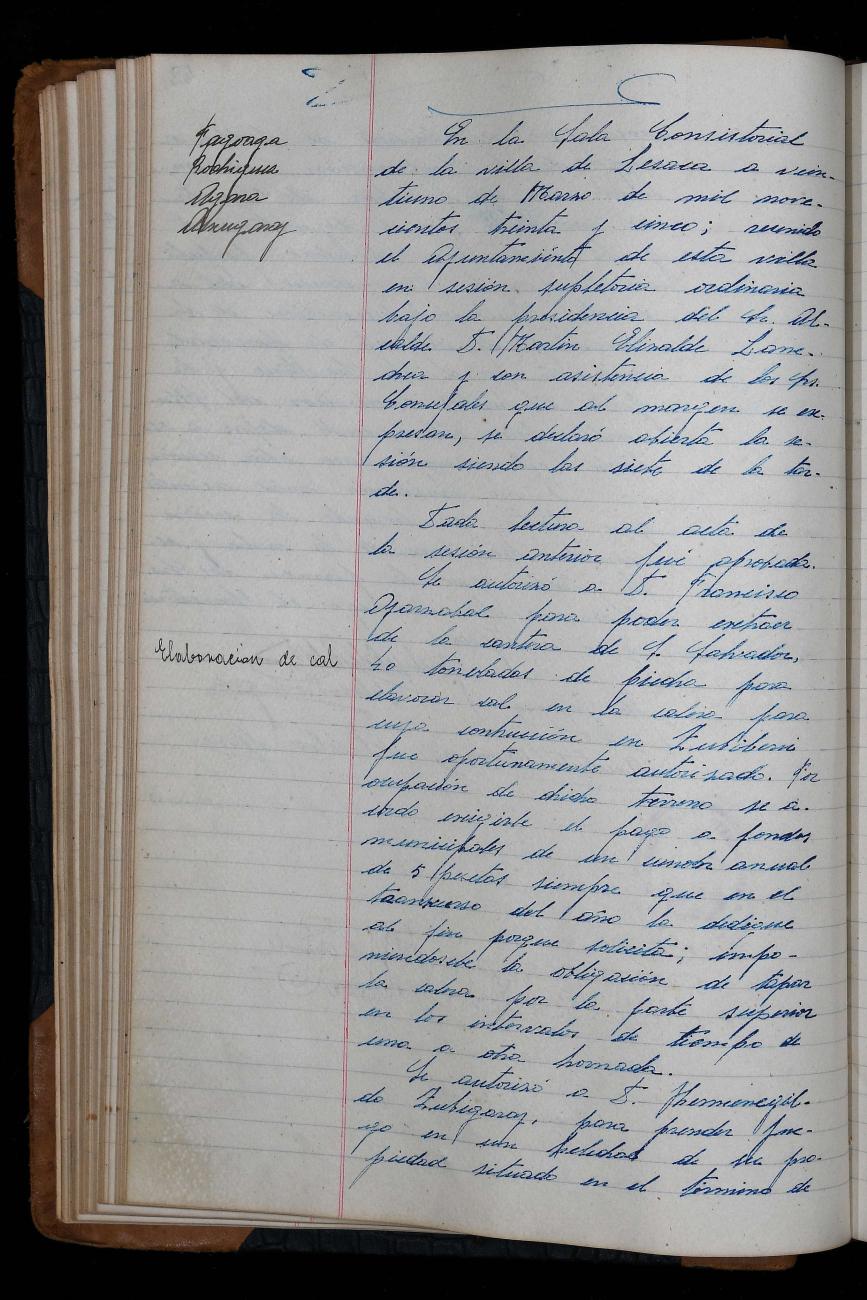 Fagoaga
Rodriguez
En la Sala Consistorial
de la villa de Lesaca a vein-
tiuno de Marzo de mil nove-
cientos treinta y cinco; reunido
el Ayuntamiento de esta villa
en sesión supletoria ordinaria
bajo la presidencia del Sr. Al-
calde D. Martin Elizalde Larre-
chea y con asistencia de los Srs.
Concejales que al margen se ex-
presan, se declaró abierta la se-
sión siendo las siete de la tar-
de.
Dada lectura al acta de
la sesión anterior fué aprobada.
Se autorizó a D. Francisco
para poder extraer
de la cantera de S. Salvador,
Elaboracion de cal
toneladas de piedra para
elavorar cal en la calera para
cuya contrucción en Zubiberri
fue oportunamente autorizado. Por
ocupación de dicho terreno se a-
cordo exigirle el pago a fondos
municipales de un canon anual
de 5 pesetas siempre que en el
del año la dedique
al fin porque solicita; impo-
niendosele la obligación de tapar
la calera por la parte superior
en los intervalos de tiempo de
una a otra hornada.
Se autorizó a D. Hermenegil-
do Zubigaray, para prender fue-
go en un helechal de su pro-
piedad situado en el término de